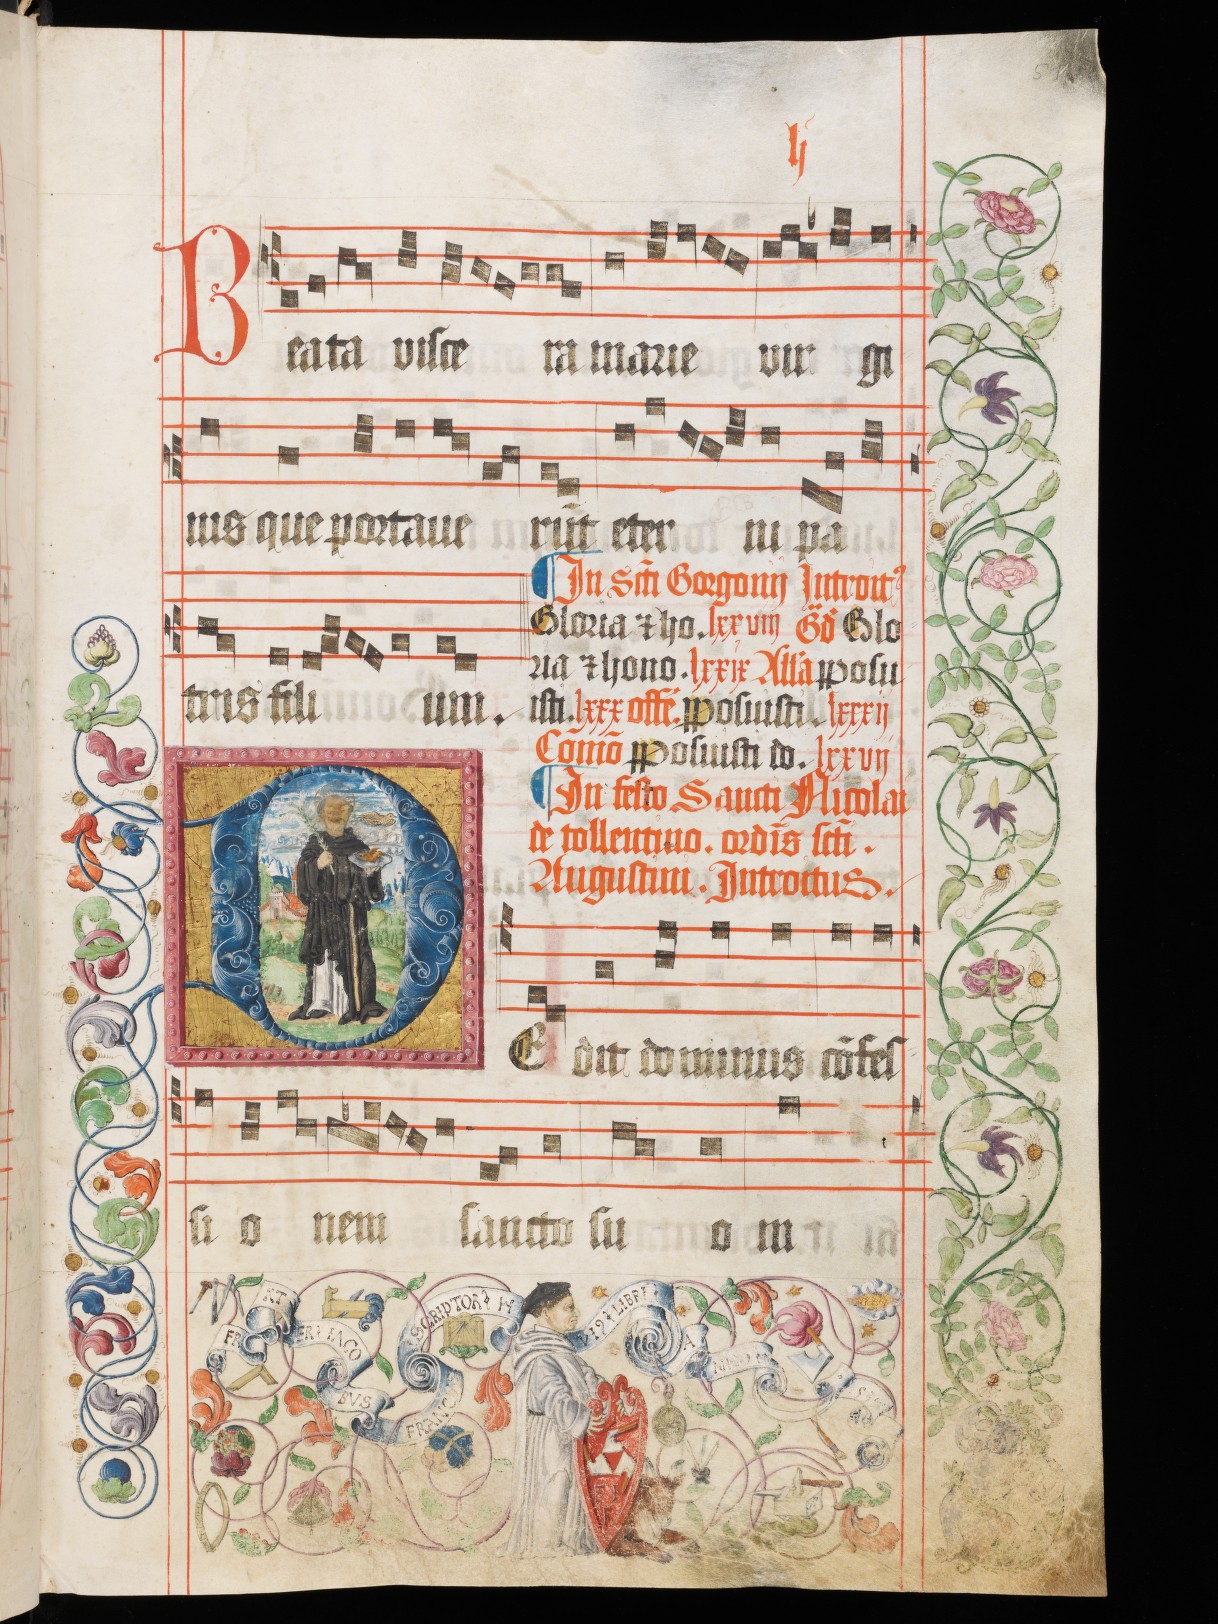 lj
Beata visce ra marie vir gi
nis que portaue rūt eter ni pa
tris fili um.
¶ In scti Gorgonij Introit⁹
Gloria ⁊ ho. lxxviij Gď Glo
ria ⁊ hono. lxxix Alla pposu
isti. lxxx offē. pposuisti. lxxxij
Cōmō pposuisti do. lxxvij
¶ In festo Sancti Nicolai
de tollentino. ordīs scti.
Augustini. Introitus.
E dit dominus cōfes
si o nem sancto su o m
FRATERI IACO BVS FRANC
SCRIPTOR
LIBRI